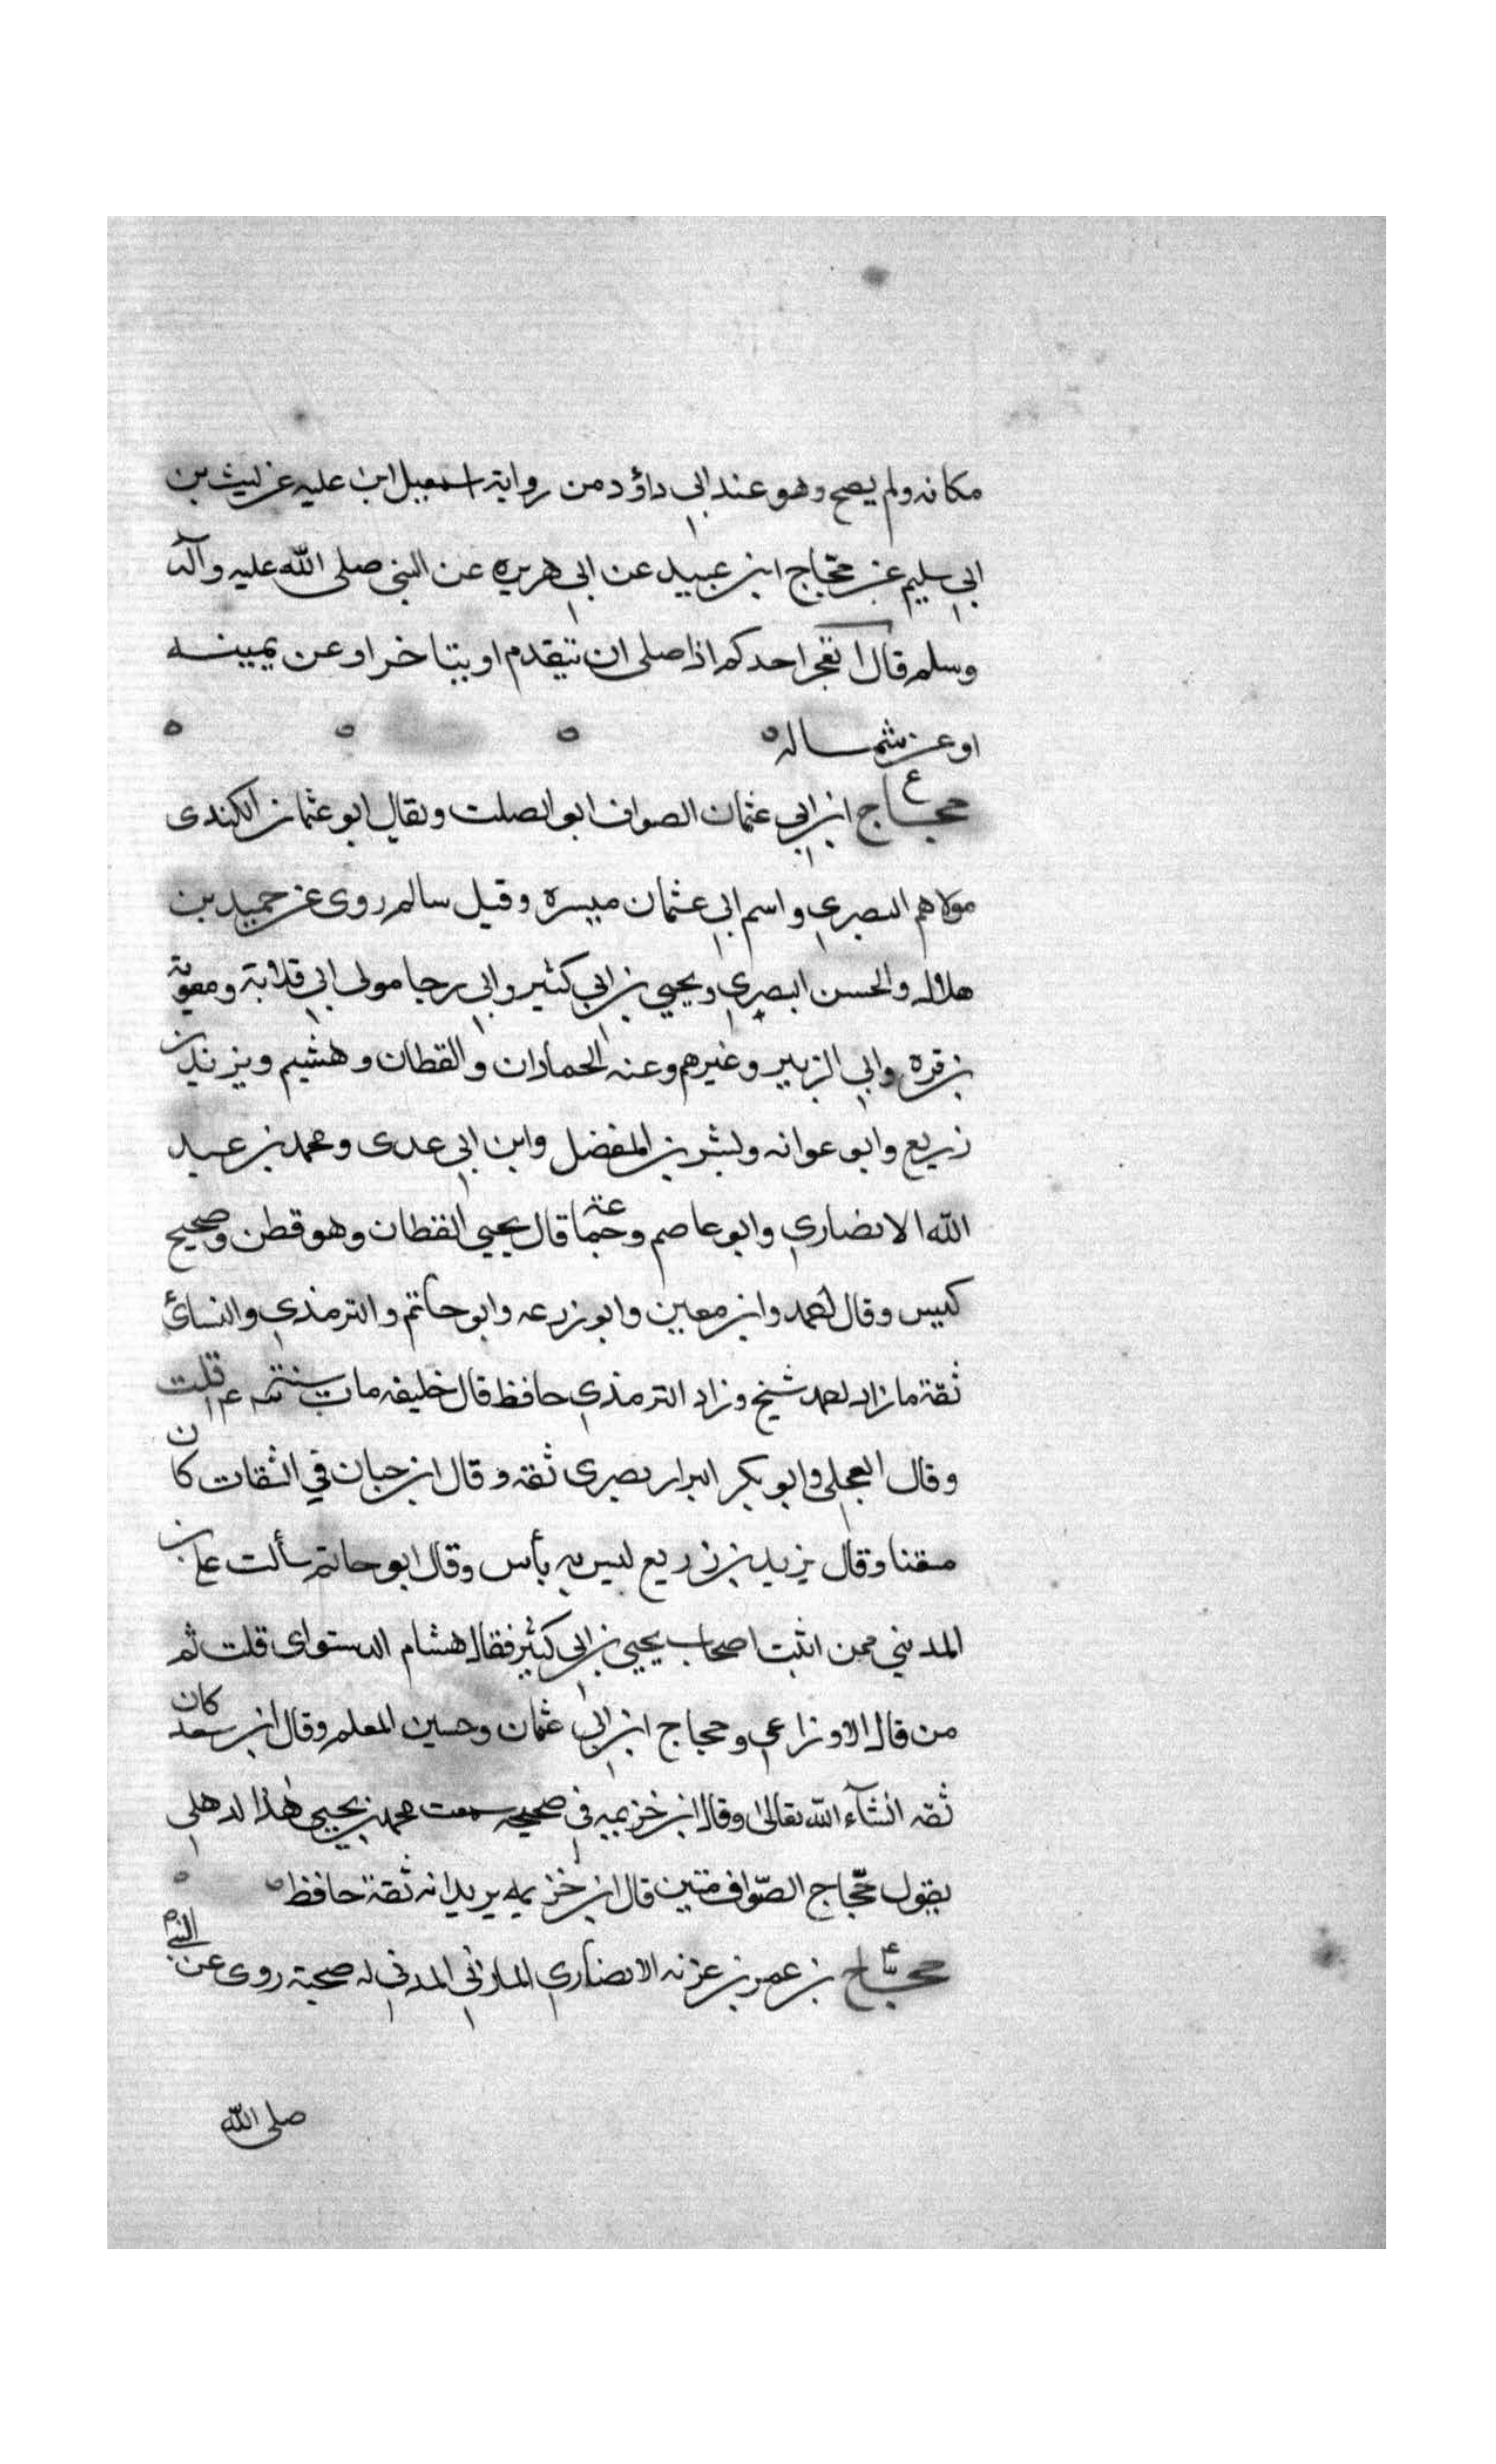 مكانه ولم يصح وهو عند ابي داؤد من رواية اسمعيل ابن عليه عن ليث بن
ابي سليم عن حجاج ابن عبيد عن ابي هريره عن النبي صلى الله عليه وآله
وسلم قال ايعجز احدكم اذا صلى ان يتقدم او يتاخر او عن يمينه
او عن شماله ه ه ه ه
حجاج ع ابن ابي عثمان الصواف ابو الصلت ويقال ابو عثمان الكندى
مولاهم البصري واسم ابي عثمان ميسرة وقيل سالم روى عن حميد بن
هلال والحسن البصري ويحيى بن ابي كثير وابي رجا مولى ابي قلابة ومعوية
بن قره وابي الزبير وغيرهم وعنه الحمادان والقطان وهشيم ويزيد بن
زريع وابو عوانه وبشر بن المفضل وابن ابي عدى ومحمد بن عبد
الله الانصاري وابو عاصم وجماعة قال يحيى القطان وهو فطن وصحيح
كيس وقال احمد وابن معين وابو زرعه وابو حاتم والترمذي والنسائ
ثقة مازاد احمد شيخ وزاد الترمذي حافظ قال خليفه مات سنة قلت
وقال العجلي وابو بكر البزار بصرى ثقه وقال ابن حبان في الثقات كان
متقنا وقال يزيد بن زريع ليس به بأس وقال ابو حاتم سألت على بن
المديني ممن اثبت اصحاب يحيى بن ابي كثير فقال هشام الدستواى قلت ثم
من قال الاوزاعي وحجاج ابن ابي عثمان وحسين المعلم وقال ابن سعد كان
ثقه انشآء الله تعالى وقال ابن خزيمه في صحيحه سمعت محمد بن يحيى هذا لدهلي
يقول حجاج الصّواف متين قال ابن خزيمه يريد انه ثقة حافظ ه ه
حجاج ع بن عمر بن غزنه الانصاري المازني المدني له صحبة روى عن النبي
صلى الله